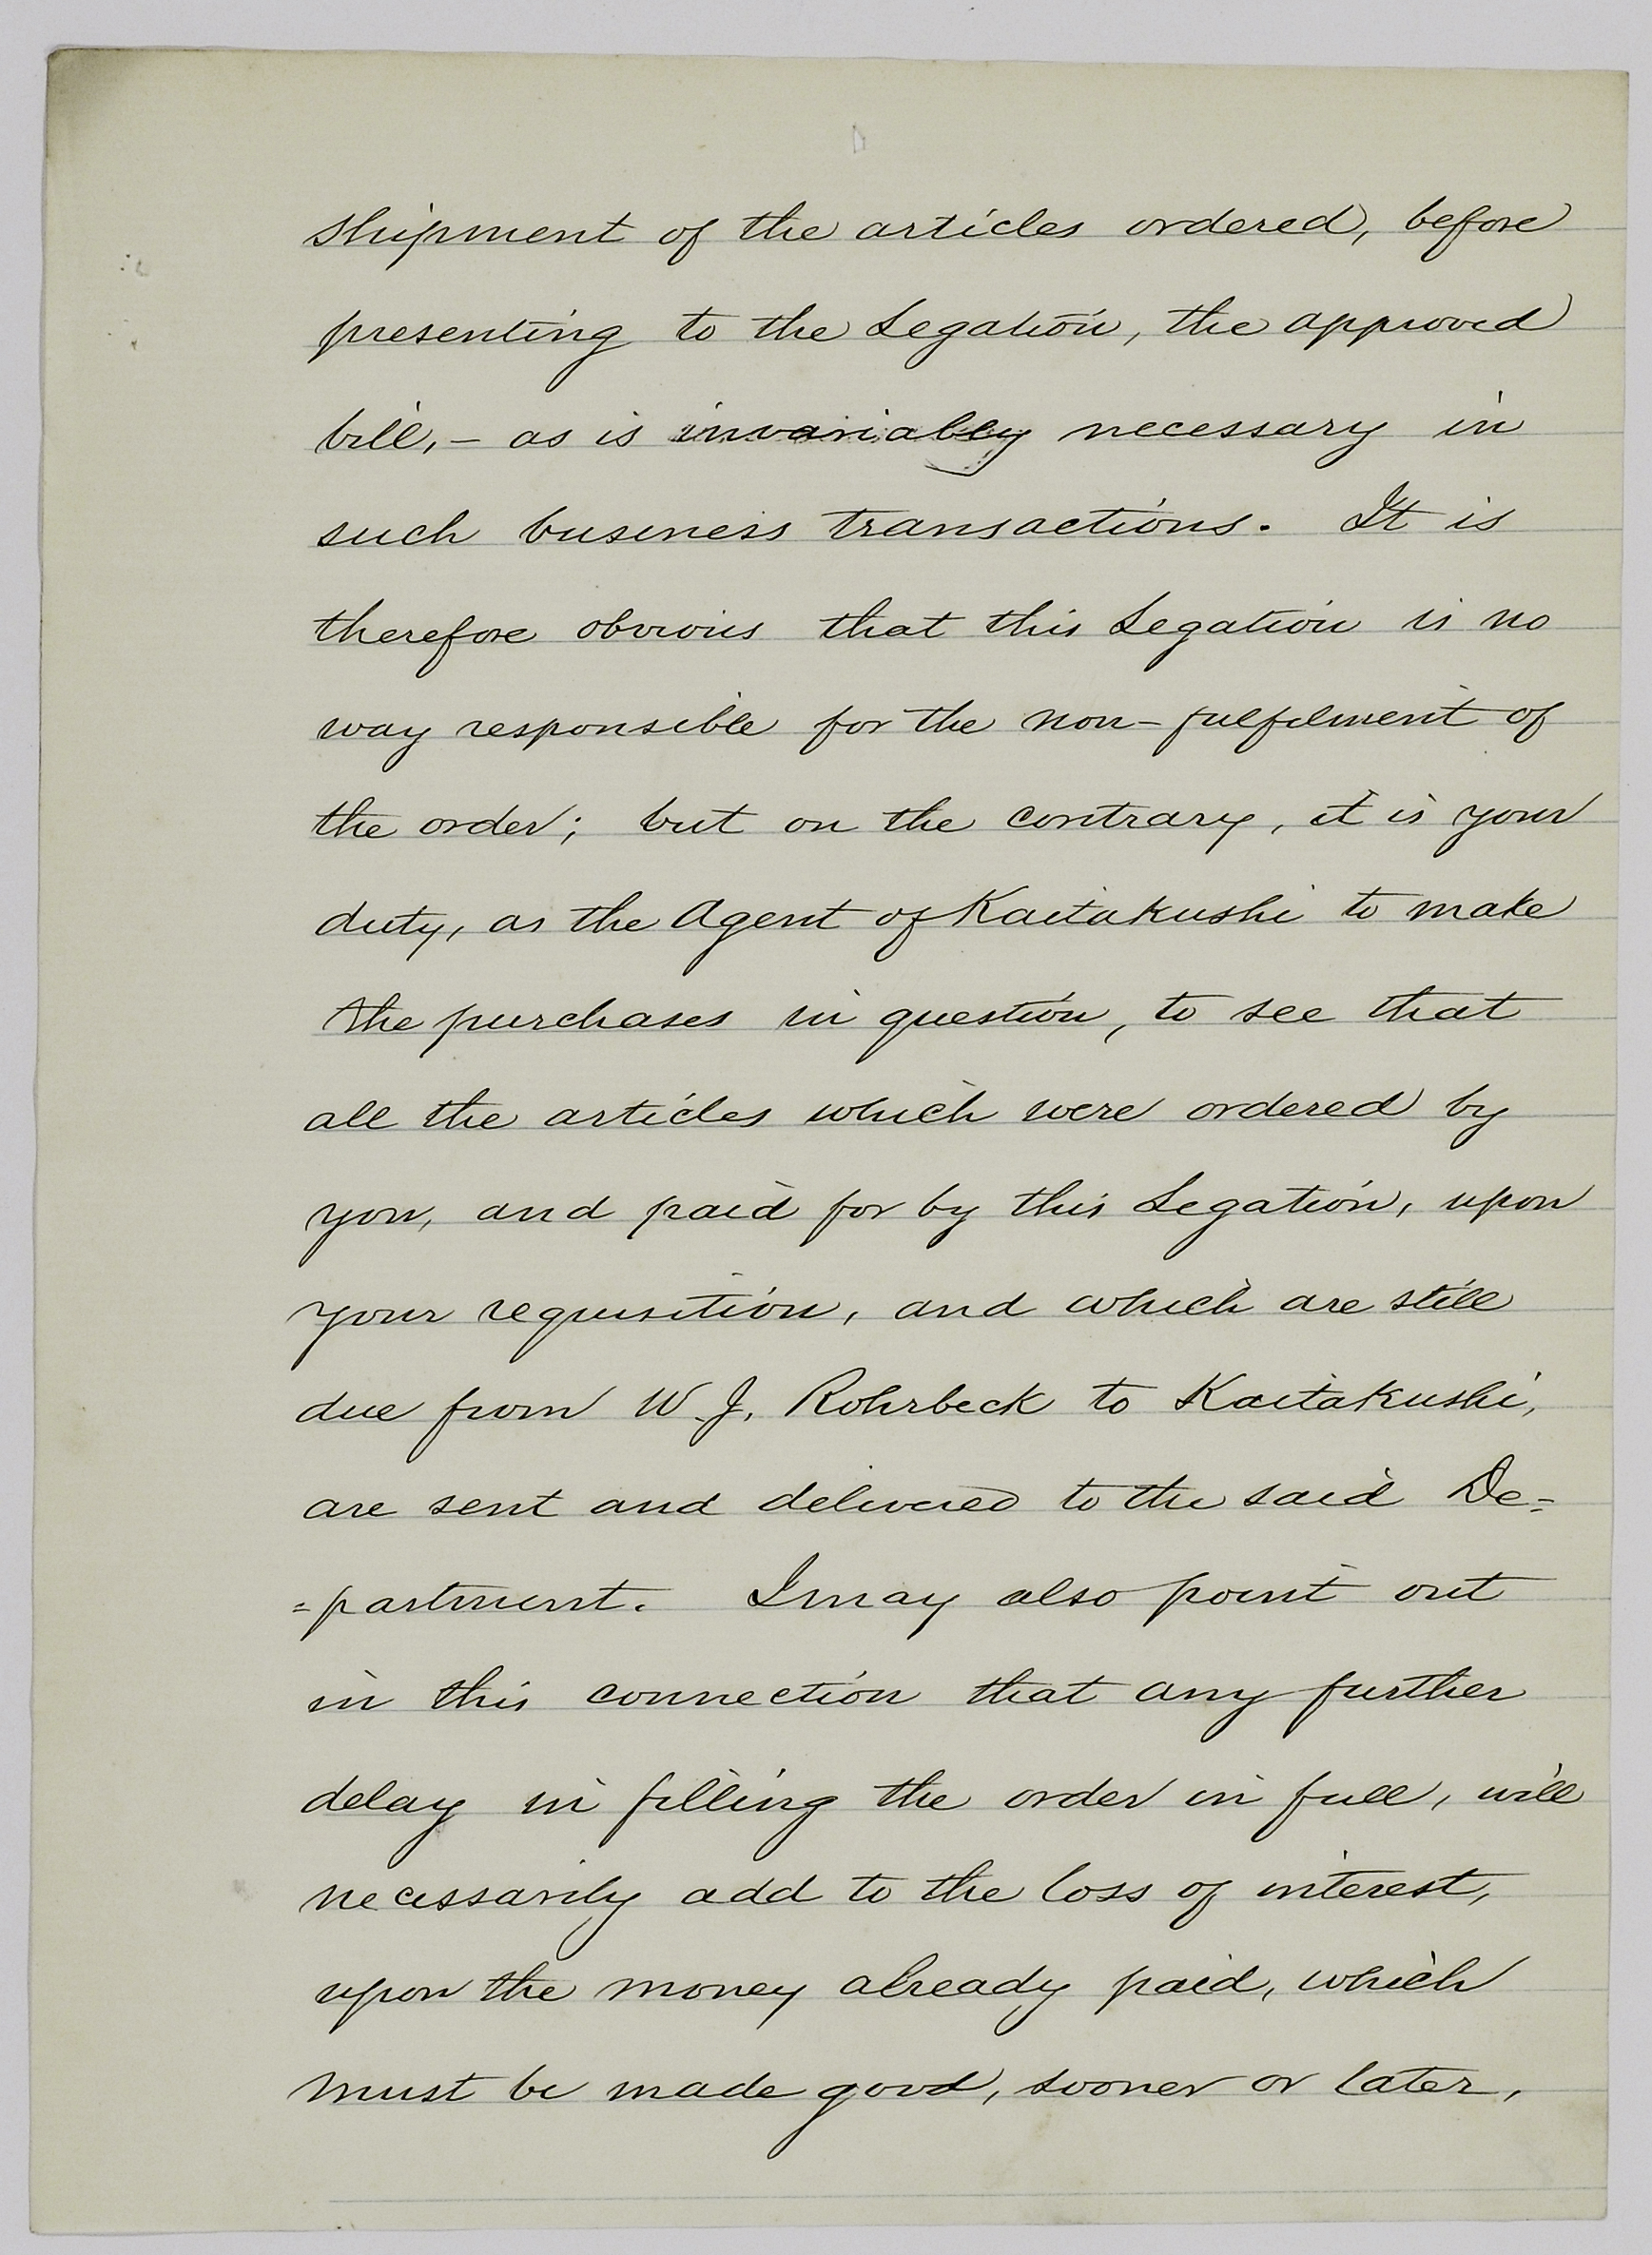 shipment of the articles ordered, before
presenting to the Legation, the approved
bill, – as is invariably necessary in
such business transactions. It is
therefore obvious that this Legation is no
way responsible for the non-fulfilment of
the order; but on the contrary, it is your
duty, as the Agent of Kaitakushi to make
the purchases in question, to see that
all the articles which were ordered by
you, and paid for by this Legation, upon
your requisition, and which are still
due from W. J. Rohrbeck to Kaitakushi,
are sent and delivered to the said De=
=partment. I may also point out
in this connection that any further
delay in filling the order in full, will
necessarily add to the loss of interest,
upon the money already paid, which
must be made good, sooner or later,